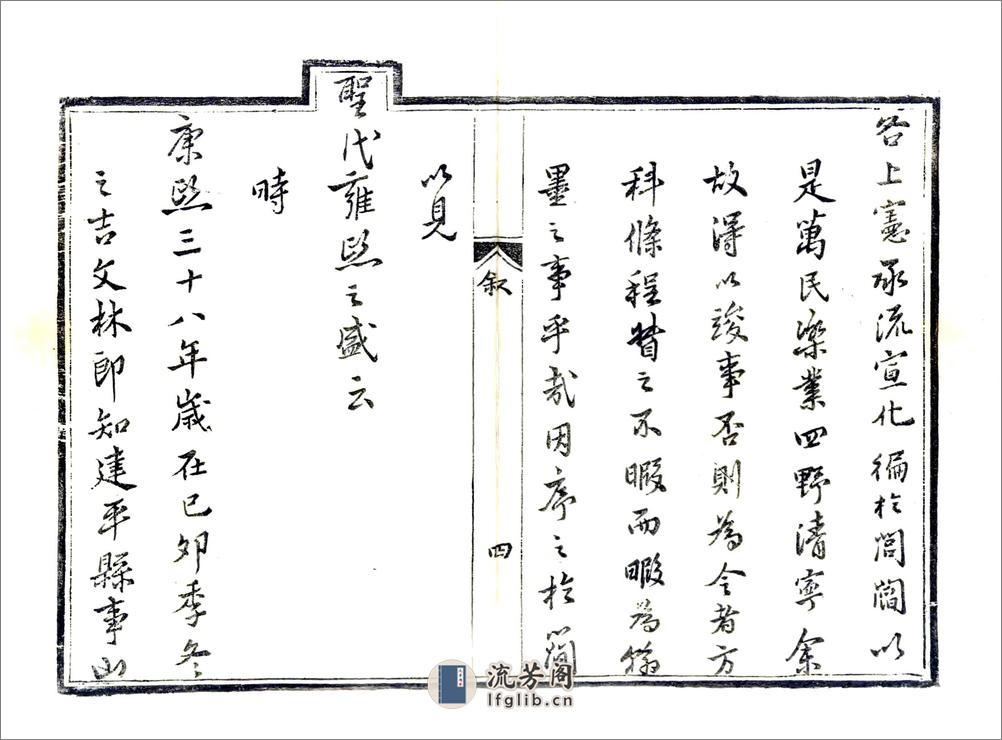 各上憲承流宣化徧於閭閻以
是萬民樂業四野清寧余
故得以竣事否則為令者方
科條程督之不暇而暇為翰
墨之事乎哉因序之於簡
叙
四
以見
聖代雍熙之盛云
時
康熙三十八年歲在己夘季冬
之吉文林郎知建平縣事山
流芳阁
lfglib.cn